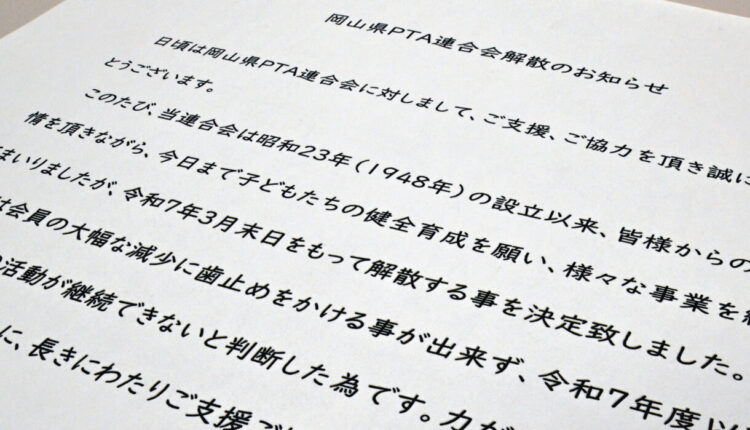 岡山県PTA連合会解散のお知らせ
日頃は岡山県PTA連合会に対しまして、ご支援、ご協力を頂き誠に
とうございます。
このたび、当連合会は昭和23年(1948年)の設立以来、皆様からの
情を頂きながら、今日まで子どもたちの健全育成を願い、様々な事業を
まいりましたが、令和7年3月末日をもって解散する事を決定致しました。
は会員の大幅な減少に歯止めをかける事が出来ず、令和7年度以
活動が継続できないと判断した為です。力が
に、長きにわたりご支援ご